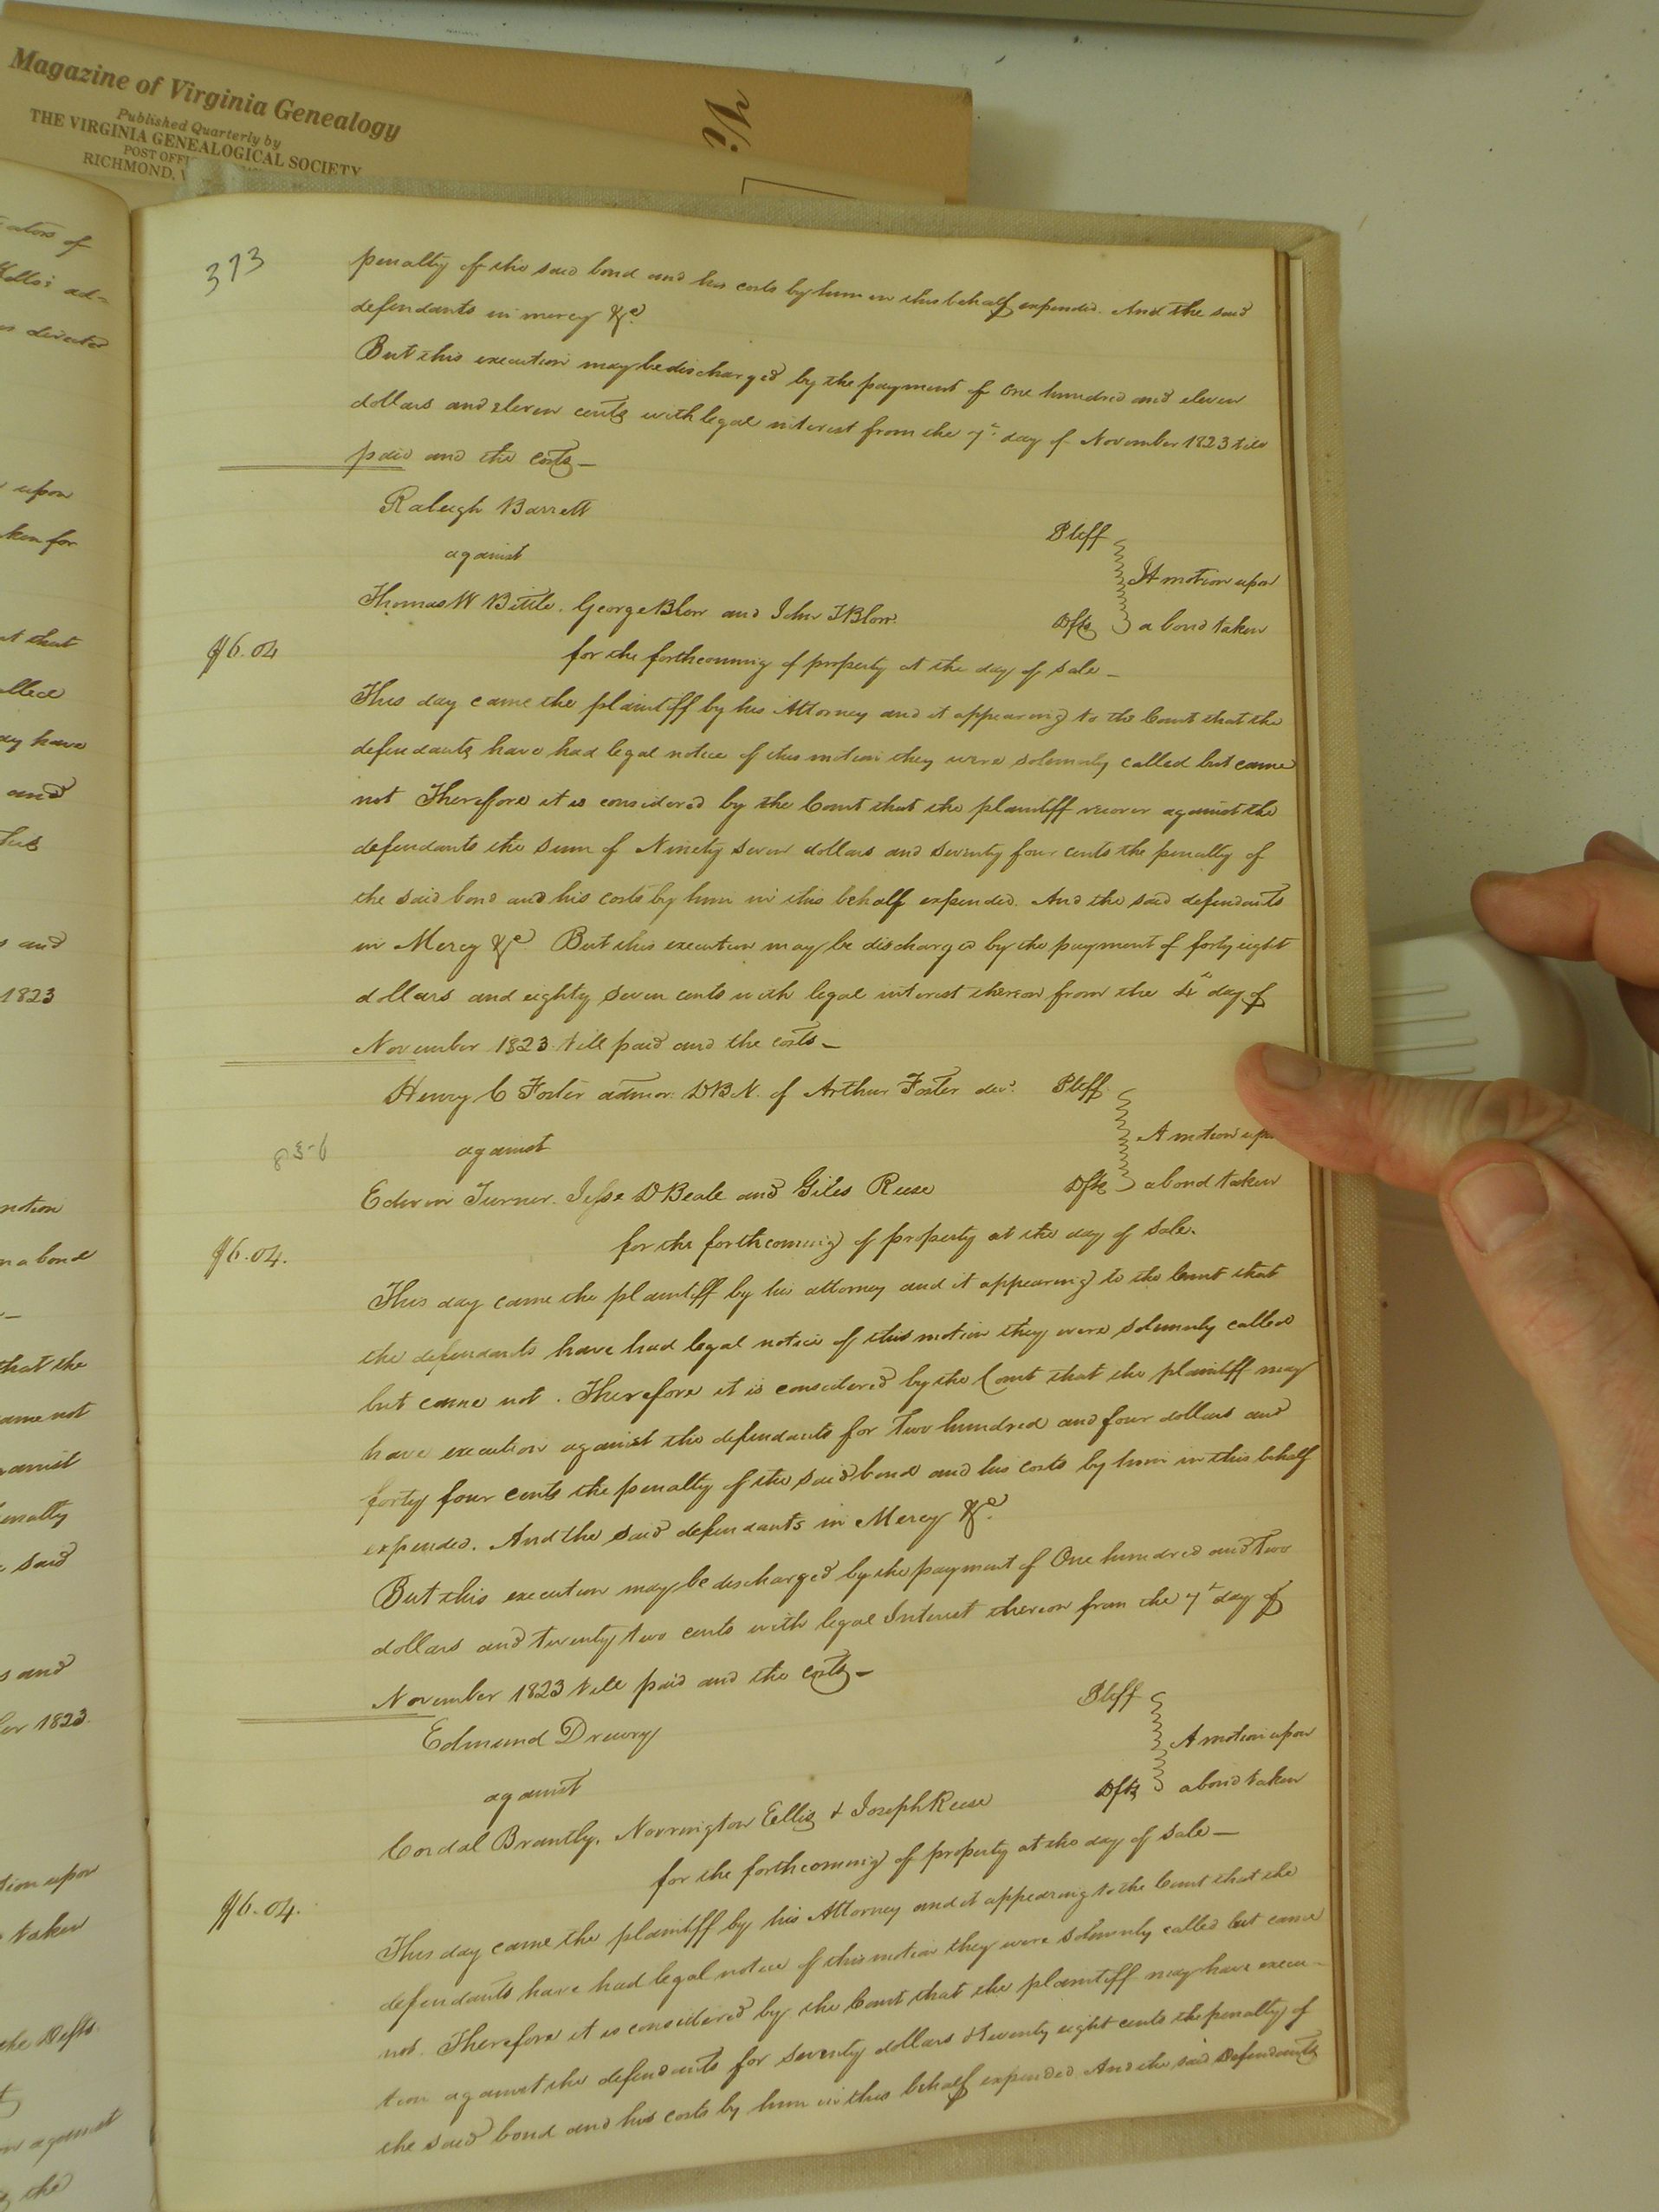 Magazine of Virginia Genealogy
Published Quarterly by
THE VIRGINIA GENEALOGICAL SOCIETY
POST OFFI
RICHMOND, V
373
penalty of the said bond and his costs by him in this behalf expended. And the said
defendants in mercy &c
But this execution may be discharged by the payment of One hundred and eleven
dollars and eleven cents with legal interest from the 7th day of November 1823 till
paid and the costs —
Raleigh Barrett Pltff
against
A motion upon
Thomas W Bittle. George Blow and John T Blow Dfts a bond taken
$6.04
for the forthcoming of property at the day of sale —
This day came the plaintiff by his Attorney and it appearing to the Court that the
defendants have had legal notice of this motion they were solemnly called but came
not Therefore it is considered by the Court that the plaintiff recover against the
defendants the sum of Ninety seven dollars and seventy four cents the penalty of
the said bond and his costs by him in this behalf expended. And the said defendants
in Mercy &c But this execution may be discharged by the payment of forty eight
dollars and eighty seven cents with legal interest thereon from the 4th day of
November 1823 till paid and the costs —
Henry C Foster admor. DBN. of Arthur Foster decd. Pltff
against A motion upo
Edwin Turner. Jesse D Beale and Giles Reese Dfts a bond taken
for the forthcoming of property at the day of sale.
$6.04.
This day came the plaintiff by his attorney and it appearing to the Court that
the defendants have had legal notice of this motion they were solemnly called
but came not. Therefore it is considered by the Court that the plaintiff may
have execution against the defendants for Two hundred and four dollars and
forty four cents the penalty of the said bond and his costs by him in this behalf
expended. And the said defendants in Mercy &c.
But this execution may be discharged by the payment of One hundred and Two
dollars and twenty two cents with legal Interest thereon from the 7th day of
November 1823 till paid and the costs —
Edmund Drewry Pltff
against A motion upon
Cordal Brantly, Norrington Ellis & Joseph Reese Dfts a bond taken
for the forthcoming of property at the day of sale —
$6.04.
This day came the plaintiff by his Attorney and it appearing to the Court that the
defendants have had legal notice of this motion they were solemnly called but came
not. Therefore it is considered by the Court that the plaintiff may have execu-
tion against the defendants for seventy dollars & twenty eight cents the penalty of
the said bond and his costs by him in this behalf expended. And the said Defendants